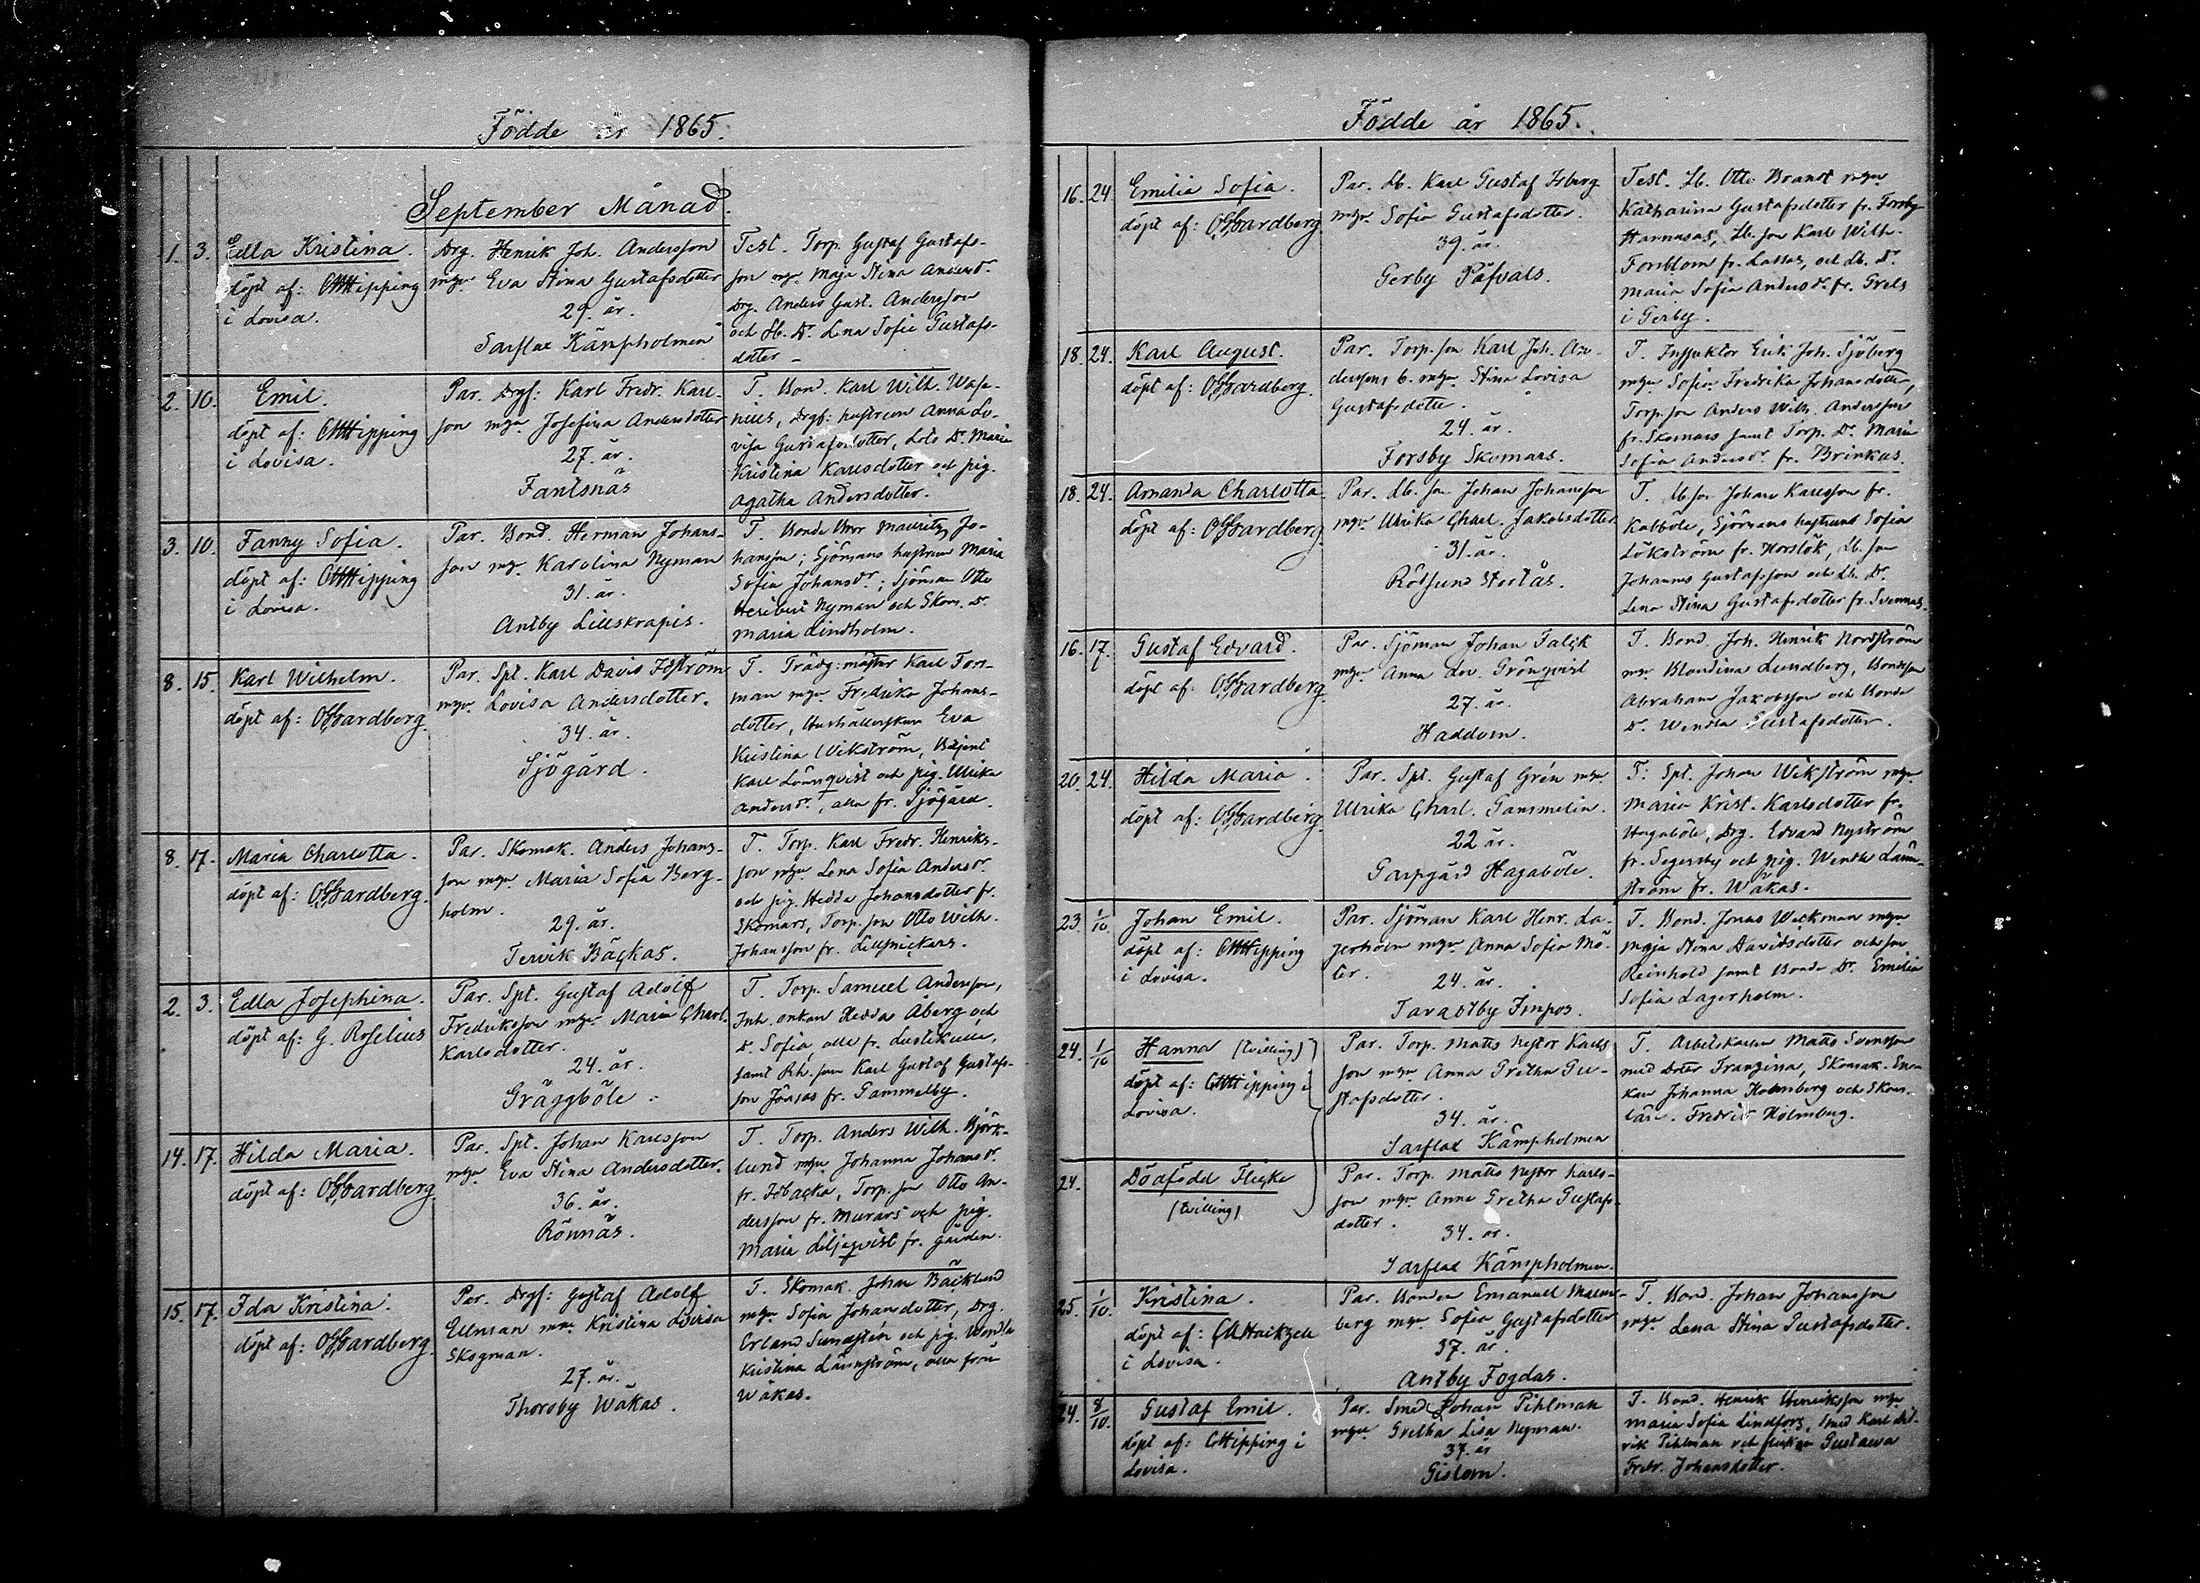 Födde år 1865.
September Månad.
1. 3. Edla Kristina.
döpt af: Hipping
i Lovisa.
Drg. Henrik Joh. Andersson
mgn Eva Stina Gustafsdotter
29. år.
Sarflax Kämpholmen
Test. Torp. Gustaf Gustafs-
son mgn Maja Stina Andersdr.
Drg. Anders Gust. Andersson
och Lb. Dr. Lena Sofia Gustafs-
dotter –
2. 10. Emil.
döpt af: Hipping
i Lovisa.
Par. Drgf: Karl Fredr. Karl-
son mgn Josefina Andersdotter
27. år.
Fantsnäs
T. Bond. Karl Wilh. Wase-
nius, Drgf: hustrun Anna Lo-
visa Gustafsdotter, Lots Dr. Maria
Kristina Karlsdotter och pig.
Agatha Andersdotter.
3. 10. Fanny Sofia.
döpt af: Hipping
i Lovisa.
Par. Bond. Herman Johans-
son mgn Karolina Nyman
31. år.
Antby Lillskrapis.
T. Bonde Mauritz Jo-
hansson; Sjömans hustrun Maria
Sofia Johansdr.; Sjöman Otto
Heribert Nyman och Skom. Dr.
Maria Lindholm.
8. 15. Karl Wilhelm.
döpt af: Gardberg.
Par. Spt. Karl David Idström
mgn Lovisa Andersdotter.
34. år.
Sjögård.
T. Trädg: mäster Karl Fors-
man mgn Fredrika Johans-
dotter, Hushållerskan Eva
Kristina Wikström, Betjent
Karl Lönnqvist och pig. Ulrika
Andersdr., alla fr. Sjögård.
8. 17. Maria Charlotta.
döpt af: Gardberg.
Par. Skomak. Anders Johans-
son mgn Maria Sofia Berg-
holm.
29. år.
Tervik Bäckas.
T. Torp. Karl Fredr. Henriks-
son mgn Lena Sofia Andersdr.
och pig. Hedda Johansdotter fr.
Skomars, Torp. son Otto Wilh.
Johansson fr. Lillsnickars.
2. 3. Edla Josephina.
döpt af: G. Roselius
Par. Spt. Gustaf Adolf
Fredriksson mgn Maria Charl.
Karlsdotter.
24. år.
Gräggböle.
T. Torp. Samuel Andersson,
Inh. enkan Hedda Åberg och
Dr. Sofia, alla fr. Lustikulla,
samt Rh. son Karl Gustaf Gustafs-
son Jönsas fr. Gammelby.
14. 17. Hilda Maria.
döpt af: Gardberg.
Par. Spt. Johan Karlsson
mgn Eva Stina Andersdotter.
36. år.
Rönnäs.
T. Torp. Anders Wilh. Björk-
lund mgn Johanna Johansdr.
fr. Isbacka, Torp. son Otto An-
dersson fr. Murars och pig.
Maria Liljeqvist fr. gården.
15. 17. Ida Kristina.
döpt af: Gardberg.
Par. Drgf: Gustaf Adolf
Ellman mgn Kristina Lovisa
Skogman.
27. år.
Thorsby Wäkas.
T. Skomak. Johan Bäcklund
mgn Sofia Johansdotter, Drg.
Erland Sundstén och pig. Wendla
Kristina Lännström, alla från
Wäkas.
Födde år 1865.
16. 24. Emilia Sofia.
döpt af: Gardberg.
Par. Lb. Karl Gustaf Isberg
mgn Sofia Gustafsdotter.
39. år.
Gerby Påfvals.
Test. Lb. Otto Brandt mgn
Katharina Gustafsdotter fr. Forsby
Hannusas, Lb. son Karl Wilh.
Forsblom fr. Lassas, och Lb. Dr.
Maria Sofia Andersdr. fr. Grels
i Gerby.
18. 24. Karl August.
döpt af: Gardberg.
Par. Torp. son Karl Joh. An-
derssons b. mgn Stina Lovisa
Gustafsdotter.
24. år.
Forsby Skomars.
T. Inspektor Erik Joh. Sjöberg
mgn Sofia Fredrika Johansdotter,
Torp. son Anders Wilh. Andersson
fr. Skomars samt Torp. Dr. Maria
Sofia Andersdr. fr. Brinkas.
18. 24. Amanda Charlotta.
döpt af: Gardberg.
Par. Lb. son Johan Johansson
mgn Ulrika Charl. Jakobsdotter
31. år.
Rödsund Storås.
T. Lb son Johan Karlsson fr.
Kalböle, Sjömans hustrun Sofia
Lökström fr. Horslök, Lb. son
Johannes Gustafsson och Lb. Dr.
Lena Stina Gustafsdotter fr. Svennas.
16. 17. Gustaf Edvard.
döpt af: Gardberg.
Par. Sjöman Johan Falck
mgn Anna Lov. Grönqvist
27. år.
Haddom.
T. Bond. Joh. Henrik Nordström
mgn Blondina Lundberg, Bondeson
Abraham Jakobsson och Bonde
Dr. Wendla Gustafsdotter.
20. 24. Hilda Maria.
döpt af: Gardberg.
Par. Spt. Gustaf Grén mgn
Ulrika Charl. Gammelin.
22 år.
Garpgård Hagaböle.
T: Spt. Johan Wikström mgn
Maria Krist. Karlsdotter fr.
Hagaböle, Drg. Edvard Nyström
fr. Segersby och pig. Wendla Länn-
ström fr. Wäkas.
23. 1/10 Johan Emil.
döpt af: Hipping
i Lovisa.
Par. Sjöman Karl Henr. La-
gerholm mgn Anna Sofia Mö-
ler.
24. år.
Tavastby Impos.
T. Bond. Jonas Weckman mgn
Maja Stina Davidsdotter och son
Reinhold samt Bonde Dr. Emilia
Sofia Lagerholm.
24. 1/10 Hanna (tvilling)
döpt af: Hipping i
Lovisa.
Par. Torp. Matts Nestor Karls-
son mgn Anna Gretha Gu-
stafsdotter.
34. år.
Sarflax Kämpholmen
T. Arbetskarlen Matts Svensson
med dotter Franzina, Skomak. En-
kan Johanna Holmberg och Skom.
lär. Fredrik Holmberg.
24. Dödfödd Flicka
(tvilling)
Par. Torp. Matts Nestor Karls-
son mgn Anna Gretha Gustafs-
dotter.
34. år.
Sarflax Kämpholmen.
25. 1/10. Kristina.
döpt af:
i Lovisa.
Par. Bonden Emanuel Malm-
berg mgn Sofia Gustafsdotter
37. år.
Antby Fogdas.
T. Bond. Johan Johansson
mgn Lena Stina Gustafsdotter.
24. 8/10. Gustaf Emil.
döpt af: Hipping i
Lovisa.
Par. Smed Johan Pihlman
mgn Gretha Lisa Nyman.
37. år
Gislom.
T. Bond. Henrik Henriksson mgn
Maria Sofia Lindfors, Smed Karl
Pihlman och flickan Gustava
Fredr. Johansdotter.